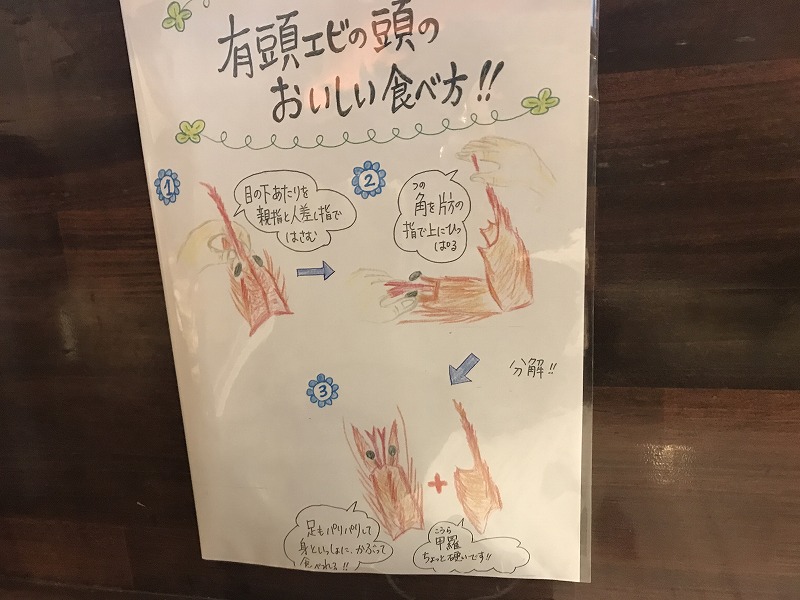 有頭エビの頭の
おいしい食べ方!!
1
目の下あたりを
親指と人差し指で
はさむ
2
つの
角を片方の
指で上にひっ
ぱる
分解!!
3
足もパリパリして
身といっしょに、かぶって
食べれる!!
こうら
甲羅
ちょっと硬いです!!